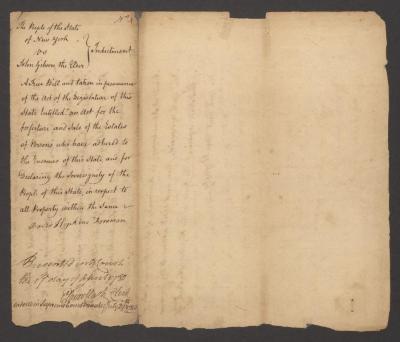 The People of the State
of New York
vs
Indictment
John Gibson the Elder
A True Bill and taken in pursuance
of the Act of the Legislature of this
State Entitled an Act for the
forfeiture and Sale of the Estates
of Persons who have adhered to
the Enemies of this State and for
Declaring the Sovereignty of the
People of this State, in respect to
all Property within the Same
Hopkins Foreman
Presented in Court
the day of
Clerk